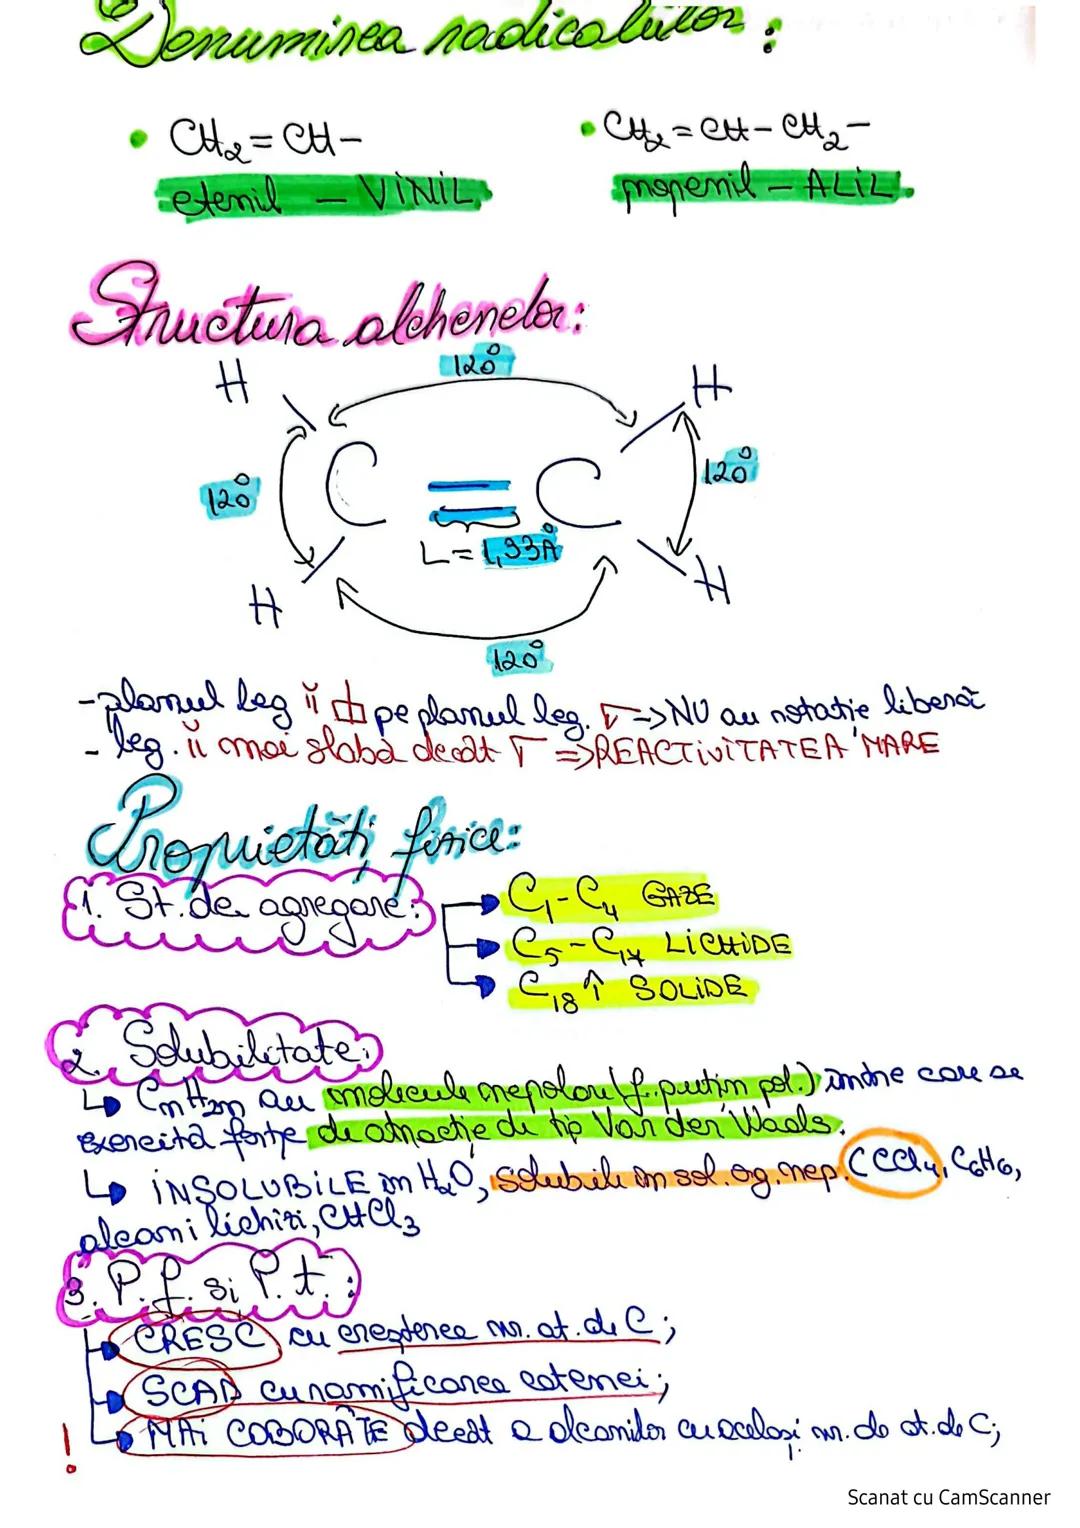 Denumirea radicalilor:
• CH₂=CH–
• CH₂=CH–CH₂–
etenil – VINIL
propenil – ALIL
Structura alchenelor:
120°
H H
120° C = C 120°
L= 1,33Å
H H
120°
-planul leg π pe planul leg. σ => NU au rotație liberă
- leg. π mai slabă decât σ => REACTIVITATEA MARE
Proprietăți fizice:
1. St. de agregare:
C₁-C₄ GAZE
C₅-C₁₇ LICHIDE
C₁₈↑ SOLIDE
2. Solubilitate:
↳ CnH2n au molecule nepolare (f. puțin pol.) între care se
exercită forțe de atracție de tip Van der Waals.
↳ INSOLUBILE în H₂O, solubile în sol. og. nep. (CCl₄, C₆H₆,
alcani lichizi, CHCl₃
3. P.f. si P.t.:
CRESC cu creșterea nr. at. de C;
SCAD cu ramificarea catenei;
! MAI COBORÂTE decât a alcanilor cu același nr. de at. de C;
Scanat cu CamScanner